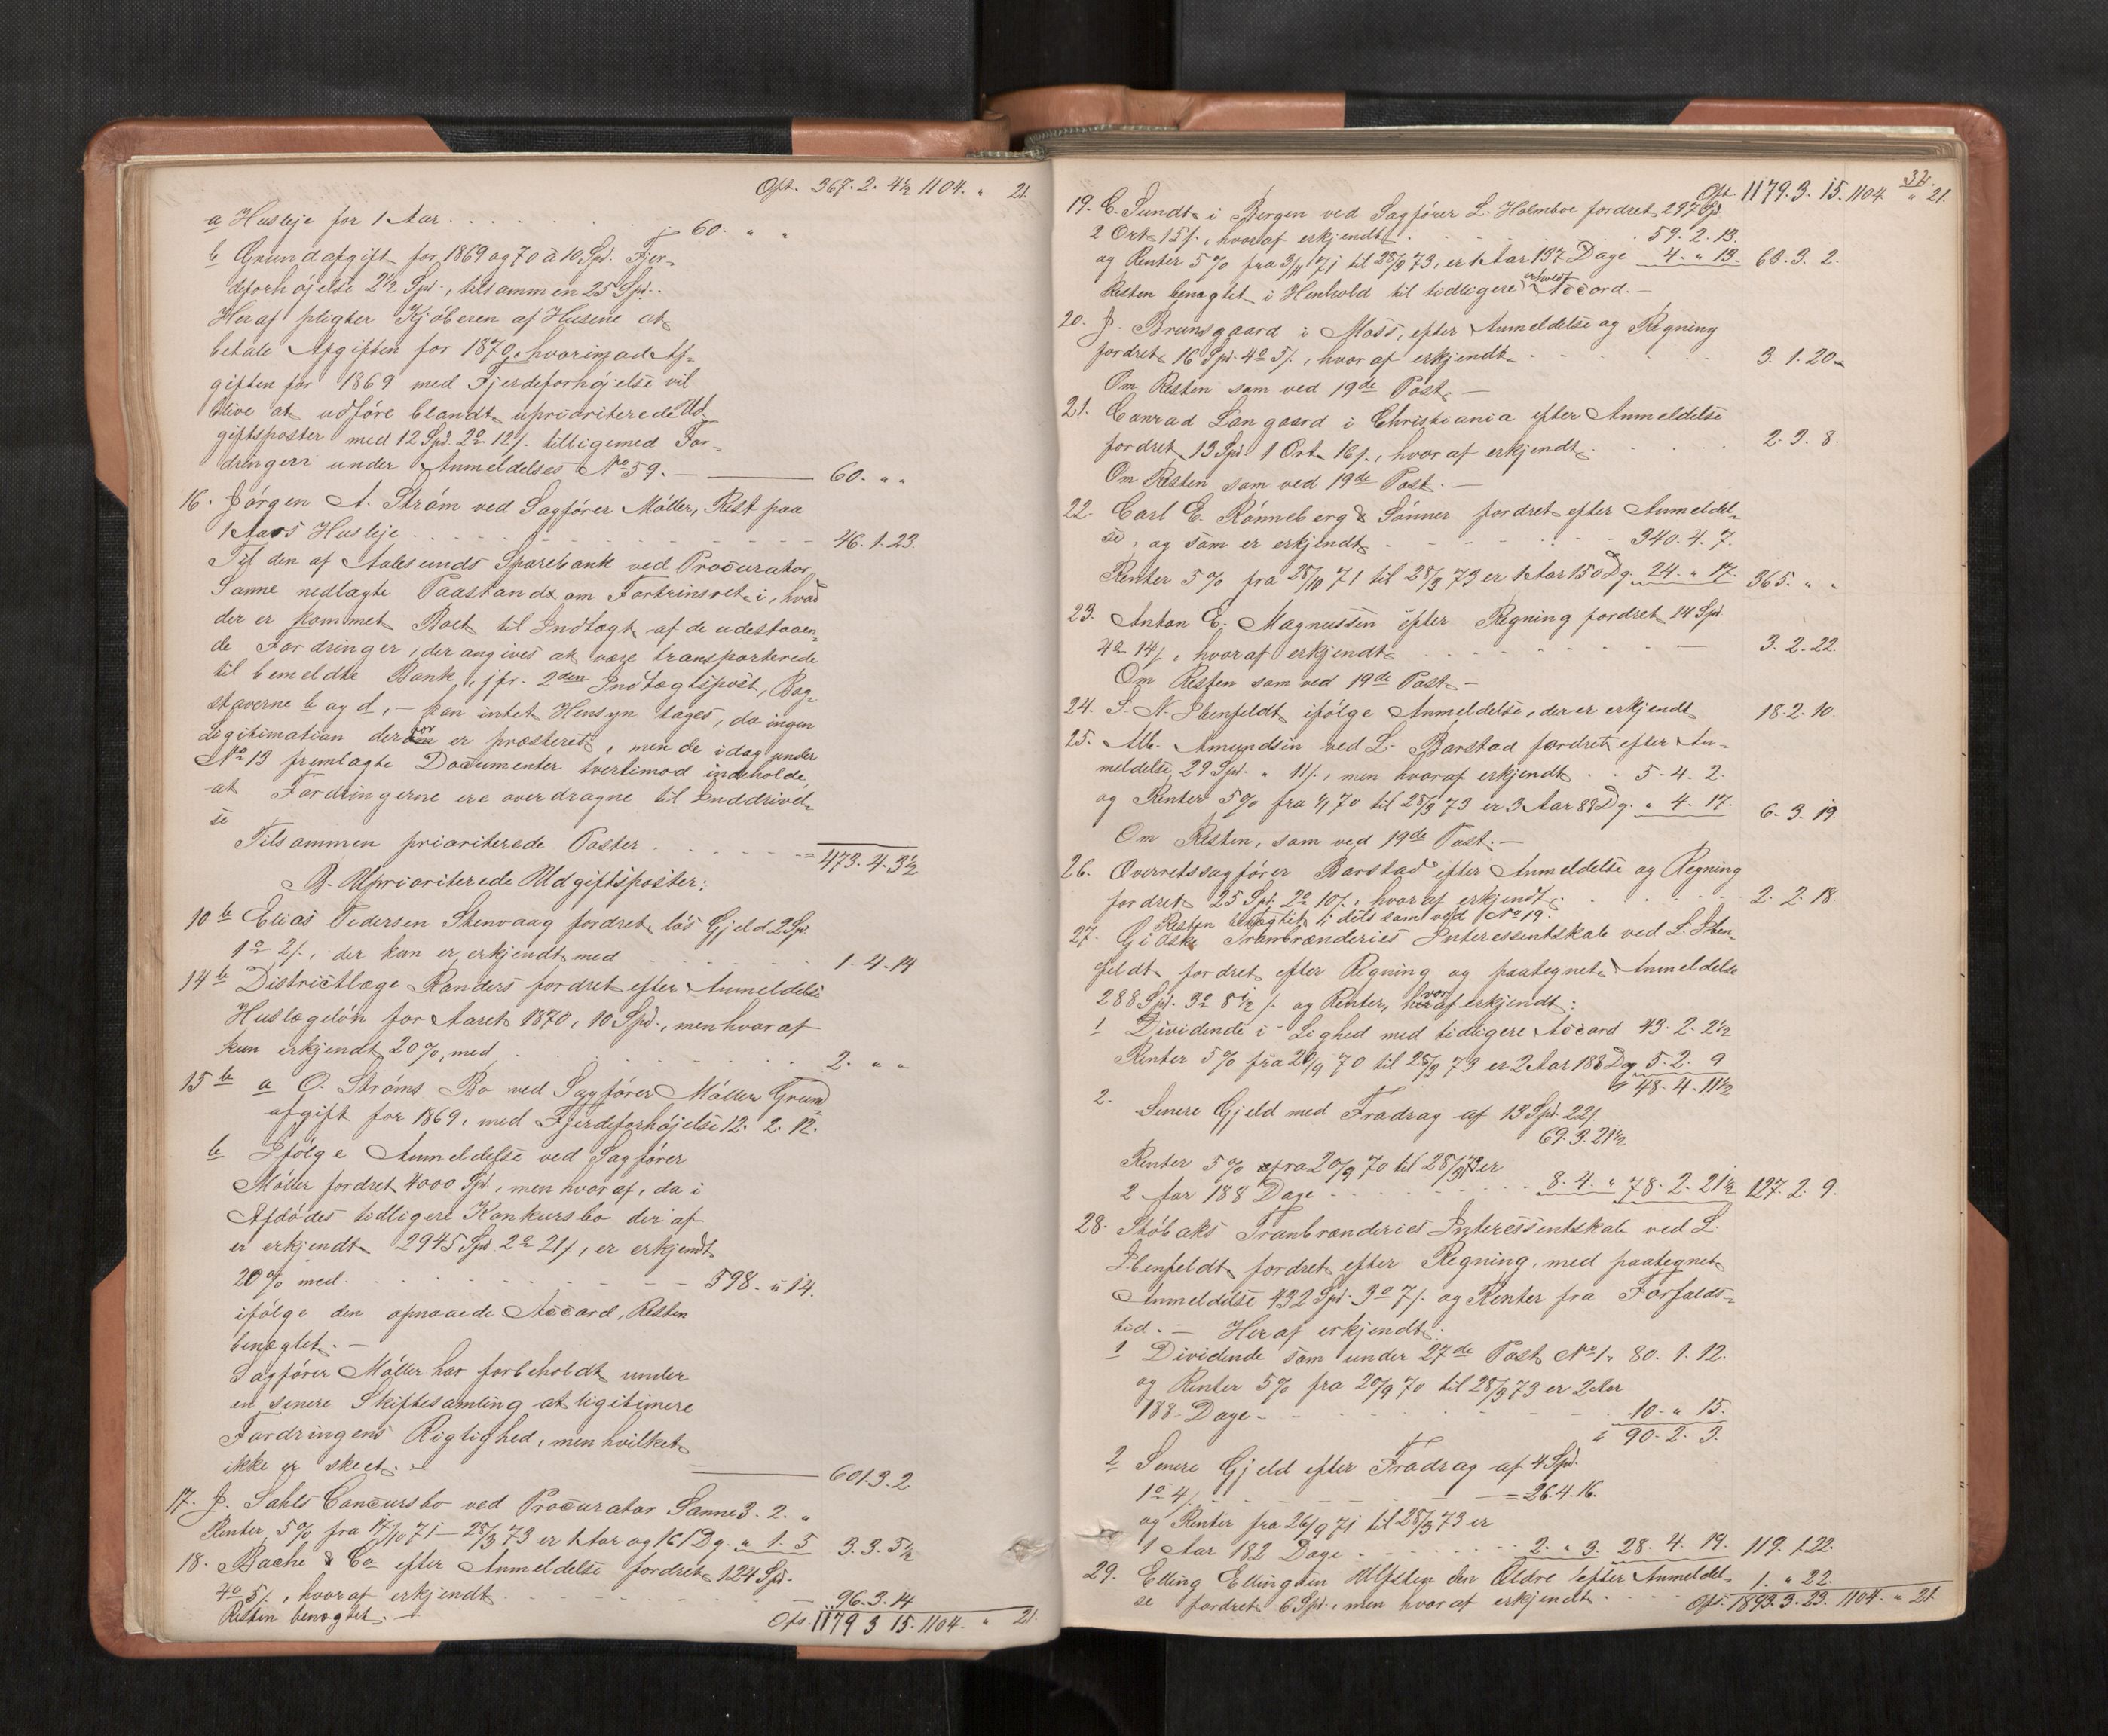 Oft. 367. 2. 4½ 1104. " 21.
a Husleje for 1 Aar . . . . . 60. " "
b Grundafgift for 1869 og 70 à 10 Spd. Fjer-
deforhøjelse 2½ Spd., tilsammen 25 Spd.
Heraf pligter Kjøberen af Husene at
betale Afgiften for 1870, hvorimod Af-
giften for 1869 med Fjerdeforhøjelse vil
blive at udføre blandt uprioriterede Ud-
giftsposter med 12 Spd. 2 o 12 s. tilligemed For-
dringen under Anmeldelses No 59. — 60. " "
16. Jørgen A. Strøm ved Sagfører Møller, Rest paa
1 Aars Husleje . . . . . 46. 1. 23.
Til den af Aalesunds Sparebank ved Procurator
Sanne nedlagte Paastand om Fortrinsret i, hvad
der er kommet Boet til Indtægt af de udestaaen-
de Fordringer, der angives at være transporterede
til bemeldte Bank, jfr. 2den Indtægtspost, Bog-
staverne b og d, — kan intet Hensyn tages, da ingen
Legitimation derfor er præsteret, men de idag under
No 13 fremlagte Documenter tvertimod indeholde,
at Fordringerne ere overdragne til Inddrivel-
se
Tilsammen prioriterede Poster . . . . = 473. 4. 3½
B. Uprioriterede Udgiftsposter:
10 b Elias Pedersen Stenvaag fordret løs Gjeld 2 Spd.
1 o 2 s., der kan er erkjendt med . . . . 1. 4. 14
14 b Districtlæge Randers fordret efter Anmeldelse
Huslægeløn for Aaret 1870, 10 Spd., men hvoraf
kun erkjendt 20%, med . . . . 2. " "
15 b a O. Strøms Bo ved Sagfører Møller Grund-
afgift for 1869, med Fjerdeforhøjelse 12. 2. 12.
b Ifølge Anmeldelse ved Sagfører
Møller fordret 4000 Spd., men hvoraf, da i
Afdødes tidligere Konkursbo der af
er erkjendt 2945 Spd 2 o 21 s., er erkjendt
20% med . . . . 598. " 14.
ifølge den opnaaede Accord, Resten
benægtet. —
Sagfører Møller har forbeholdt under
en senere Skiftesamling at legitimere
Fordringens Rigtighed, men hvilket
ikke er skeet. — 601. 3. 2.
17. J. Sahls Concursbo ved Procurator Sanne 3. 2. "
Renter 5% fra 17/10 71 — 28/3 73 er 1 Aar og 161 Dg. " 1. 5 3. 3. 5½
18. Bache & Co efter Anmeldelse fordret 124 Spd.
4 o 5 s., hvoraf erkjendt . . . . 96. 3. 14
Resten benægtet. — Ofs. 1179 3 15. 1104. " 21.
32.
Oft. 1179. 3. 15. 1104. " 21.
19. C. Sundt i Bergen ved Sagfører L. Holmboe fordret 297 Spd.
2 Ort 15 s., hvoraf erkjendt . . . . 59. 2. 13.
og Renter 5% fra 3/11 71 til 28/3 73, er 1 Aar 137 Dage 4. " 13. 63. 3. 2.
Resten benægtet i Henhold til tidligere erhvervet Accord. —
20. J. Brunsgaard i Moss, efter Anmeldelse og Regning
fordret 16 Spd. 4 o 5 s., hvoraf erkjendt . . . . 3. 1. 20
Om Resten som ved 19de Post. —
21. Conrad Langaard i Christiania efter Anmeldelse
fordret 13 Spd 1 Ort 16 s., hvoraf erkjendt . . . . 2. 3. 8.
Om Resten som ved 19de Post. —
22. Carl E. Rønneberg & Sønner fordret efter Anmeldel-
se, og som er erkjendt . . . . 340. 4. 7.
Renter 5% fra 28/10 71 til 28/3 73 er 1 Aar 150 Dg. 24. " 17. 365. " "
23. Anton E. Magnussen efter Regning fordret 14 Spd
4 o 14 s., hvoraf erkjendt . . . . — 3. 2. 22.
Om Resten som ved 19de Post. —
24. S. N. Ibenfeldt ifølge Anmeldelse, der er erkjendt 18. 2. 10.
25. Alb. Amundsen ved L. Barstad fordret efter An-
meldelse 29 Spd. " 11 s., men hvoraf erkjendt . . 5. 4. 2.
og Renter 5% fra 1/1 70 til 28/3 73 er 3 Aar 88 Dg. " 4. 17. 6. 3. 19.
Om Resten, som ved 19de Post. —
26. Overretssagfører Barstad efter Anmeldelse og Regning
fordret 25 Spd. 2 o 10 s., hvoraf erkjendt . . . . 2. 2. 18.
Resten benægtet, dels som ved No 19.
27. Gidske Tranbrænderies Interessentskab ved L. Iben-
feldt fordret efter Regning og paategnet Anmeldelse
288 Spd. 3 o 8½ s. og Renter, hvoraf erkjendt:
1 Dividende i Lighed med tidligere Accord 43. 2. 2½
Renter 5% fra 20/9 70 til 28/3 73 er 2 Aar 188 Dag 5. 2. 9
" 48. 4. 11½
2. Senere Gjeld med Fradrag af 13 Spd. 22 s.
69. 3. 21½
Renter 5% fra 20/9 70 til 28/3 73 er
2 Aar 188 Dage . . . . 8. 4. " 78. 2. 21½ 127. 2. 9.
28. Støbaks Tranbrænderies Interessentskab ved L.
Ibenfeldt fordret efter Regning, med paategnet
Anmeldelse 432 Spd. 3 o 7 s. og Renter fra Forfalds-
tid. — Heraf erkjendt:
1 Dividende som under 27de Post No 1. 80. 1. 12.
og Renter 5% fra 20/9 70 til 28/3 73 er 2 Aar
188 Dage . . . . 10. " 15.
" 90. 2. 3.
2 Senere Gjeld efter Fradrag af 4 Spd.
1 o 4 s. . . . . = 26. 4. 16.
og Renter fra 26/9 71 til 28/3 73 er
1 Aar 182 Dage . . . . 2. " 3. 28. 4. 19. 119. 1. 22.
29. Elling Ellingsen Ulfsten den Ældre efter Anmeldel- 1. " 22.
se fordret 6 Spd., men hvoraf erkjendt . . . Ofs. 1893. 3. 23. 1104. " 21